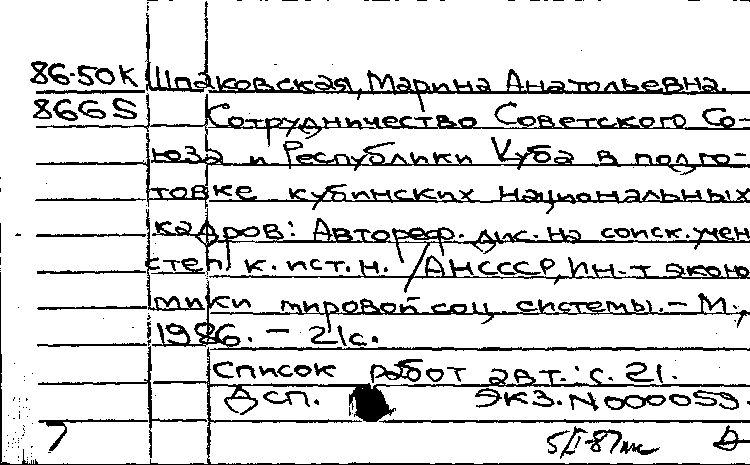 86-50К Шпаковская, Марина Анатольевна.
866S Сотрудничество Советского Со-
юза и Республики Куба в подго-
товке кубинских национальных
кадров: Автореф. дис. на соиск. учен
степ. к. ист. н. /АН СССР, Ин-т эконо
мики мировой соц. системы. – М.,
1986. – 21с.
Список работ авт.: с. 21.
Дсп. ЭКЗ. N000059.
7 5/I-87